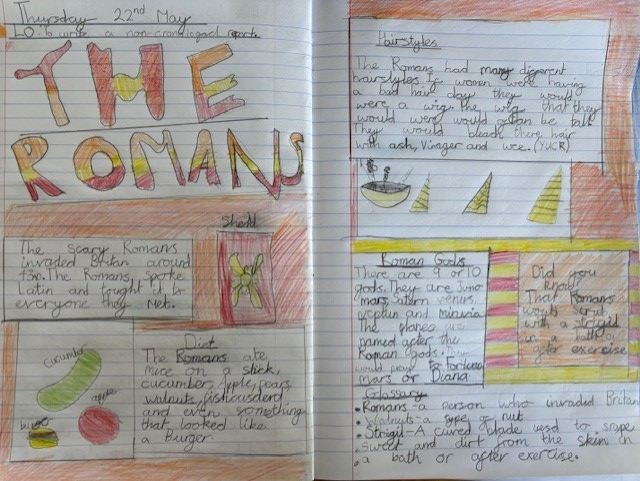 Thursday 22nd May
LO: to write a non-cronological reporte
THE
ROMANS
Sheld
The scary Romans
invaded Britan around
43o. The Romans spoke
Latin and taught it to
everyone they met.
Diet
cucumber
apple
burger
The Romans ate
mice on a stick,
cucumber, Apple, pears
walnuts, fish,custerd,
and even something
that looked like
a Burger.
Hairstyles
The Romans had many different
hairstyles. If women were having
a bad hair day they would
were a wig the wig that they
would were would be tall.
They would bleach there hair
with ash, Vinager and wee. (YUCK)
Roman Gods
There are 9 or 10
gods. They are Juno
mars, Saturn venus,
neptun and minurva
The planes are
named after the
Roman Gods.
would pray to fortuna
mars or Diana.
Did you
know?
That Romans
would scrub
with a strigid
in a bath or
after exercise
Glossary
• Romans-a person who invaded Britan
• Walnuts-a type of nut
• Strigil-A cured blade used to
• sweet and dirt from the skin in
• a bath or after exercise.